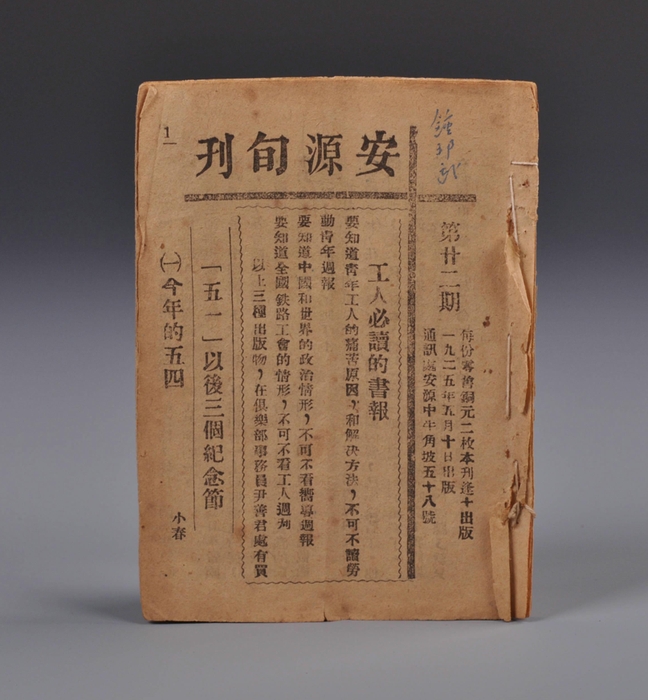 安源旬刊
第廿二期
每份零售銅元二枚本刊逢十出版
一九二五年五月十日出版
通訊處安源中牛角坡五十八號
工人必讀的書報
要知道靑年工人的痛苦原因，和解决方法，不可不讀勞
動靑年週報
要知道中國和世界的政治情形，不可不看嚮導週報
要知道全國鉄路工會的情形，不可不看工人週刋
以上三種出版物，在俱樂部事務員尹善君處有買
「五一」以後三個紀念節
小春
㈠今年的五四
1